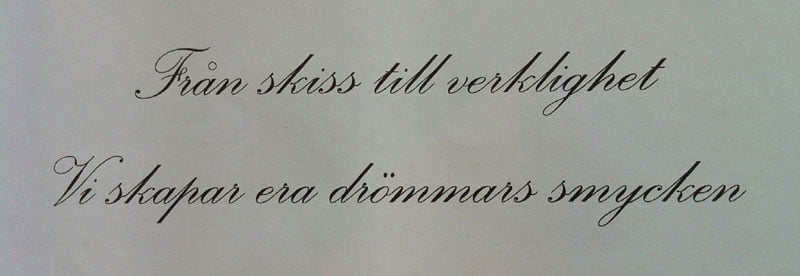 Från skiss till verklighet
Vi skapar era drömmars smycken